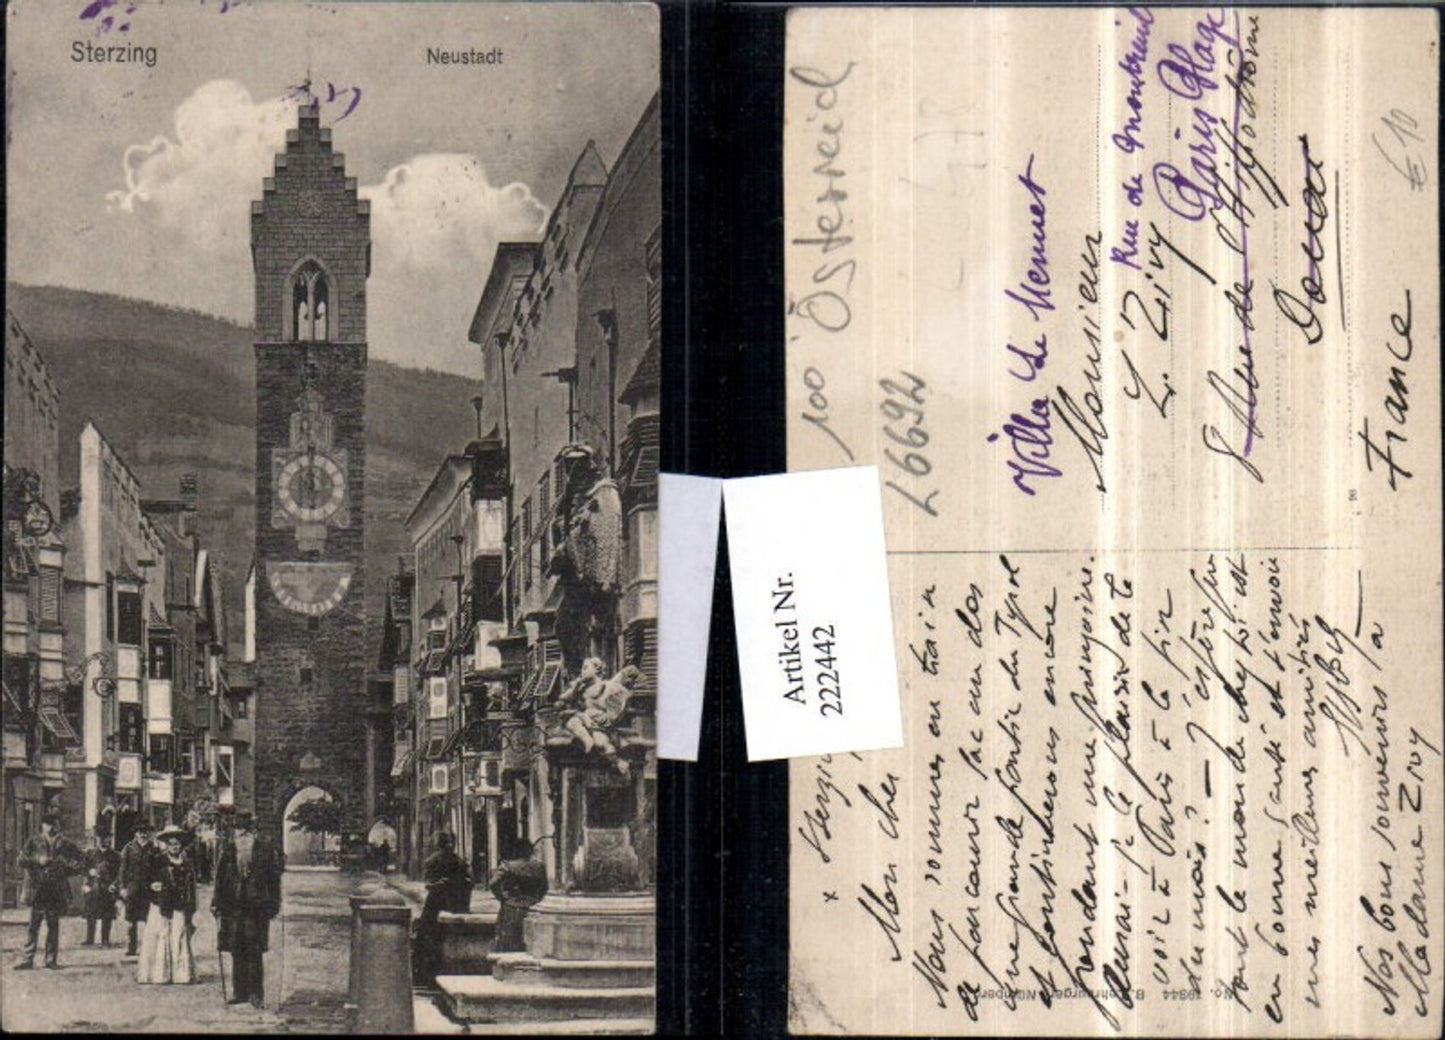 Sterzing
Neustadt
Artikel Nr.
222442
100 Österreich
L6692
€10
Mon cher
Nous sommes en train
de parcourir sac au dos
une grande partie du Tyrol
et continuerons encore
pendant une quinzaine.
Aurai-je le plaisir de te
voir à Paris à la fin
du mois? — J'espère que
tout le monde chez toi est
en bonne santé et t'envoie
mes meilleures amitiés
Nos bons souvenirs à
Madame Zivy
Villa
Monsieur
L. Zivy
Rue de Montreuil
Paris Plage
8 Rue de l'Hippodrome
Douai
France
No. 19344
Nürnberg